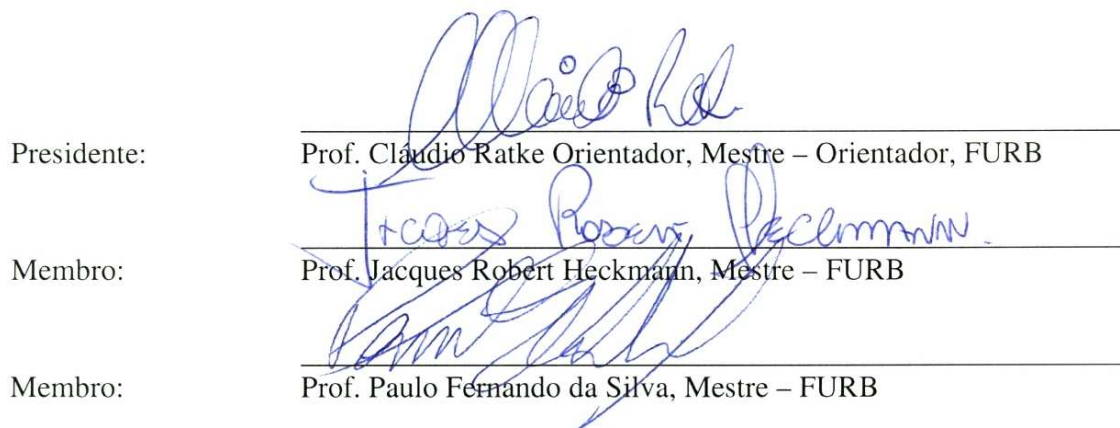 Presidente:
Prof. Cláudio Ratke Orientador, Mestre – Orientador, FURB
Jacques Robert Heckmann.
Membro:
Prof. Jacques Robert Heckmann, Mestre – FURB
Membro:
Prof. Paulo Fernando da Silva, Mestre – FURB